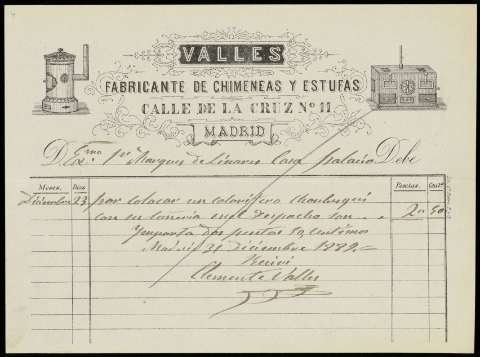 VALLES
FABRICANTE DE CHIMENEAS Y ESTUFAS
CALLE DE LA CRUZ Nº 11
MADRID
D. Exmo. Sor Marques de Linares Casa palacio Debe
Meses. Dias Pesetas. Cents.
Diciembre 23 por colocar un calorifero choubersqui
con su tuneria en el despacho son 2 50
Ymporta dos pesetas 50 centimos
Madrid 31 diciembre 1889
Recivi
Clemente Valles